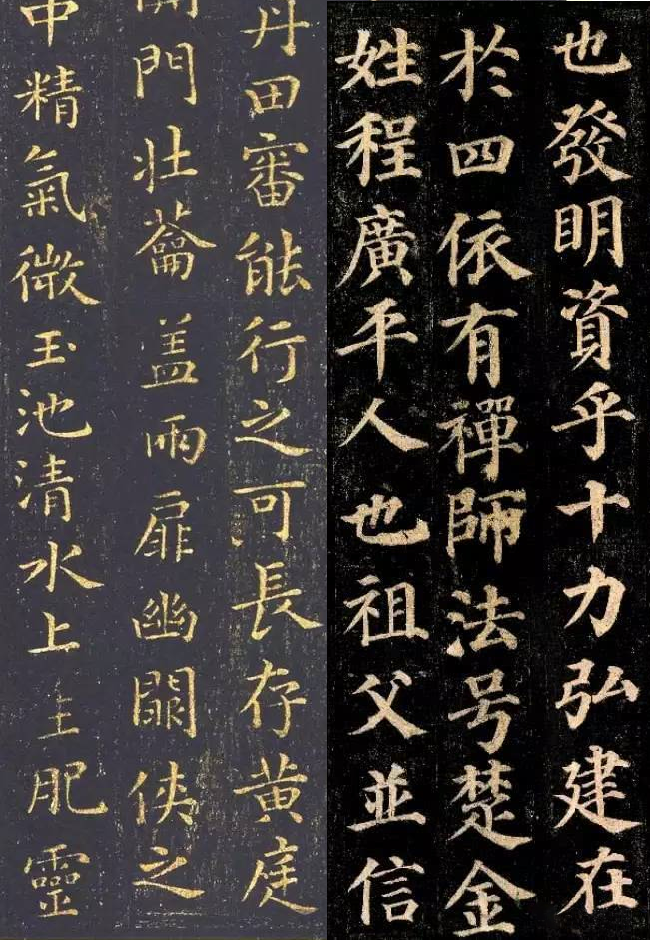 也發明資乎十力弘建在
於四依有禪師法号楚金
姓程廣平人也祖父並信
丹田審能行之可長存黄庭
門壮蘥盖兩扉幽闕侠之
中精氣微玉池清水上生肥靈